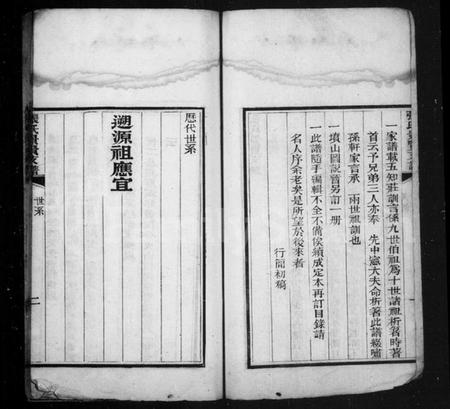 一家譜載五知莊訓言係九世伯祖爲十世諸祖析箸時著
首云予兄弟三人亦奉 先中憲大夫命析著此譜綴嘯
孫軒家言承 兩世祖訓也
一墳山圖説晉另訂一册
一此譜隨手編輯不全不備俟續成定本再訂目錄請
名人序余老矣是所望於後來者
行簡初稿
歷代世系
遡源祖應宜
世系
二